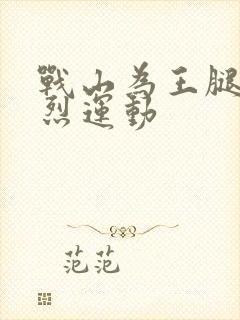 戰山為王腿
烈運動
范范